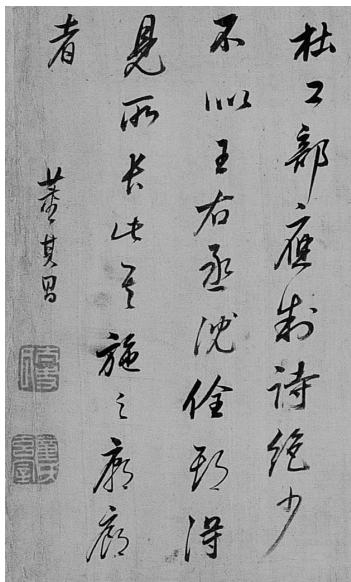 杜工部應制詩絕少
不似王右丞沈佺期得
見所長此其施之廊廟
者
董其昌